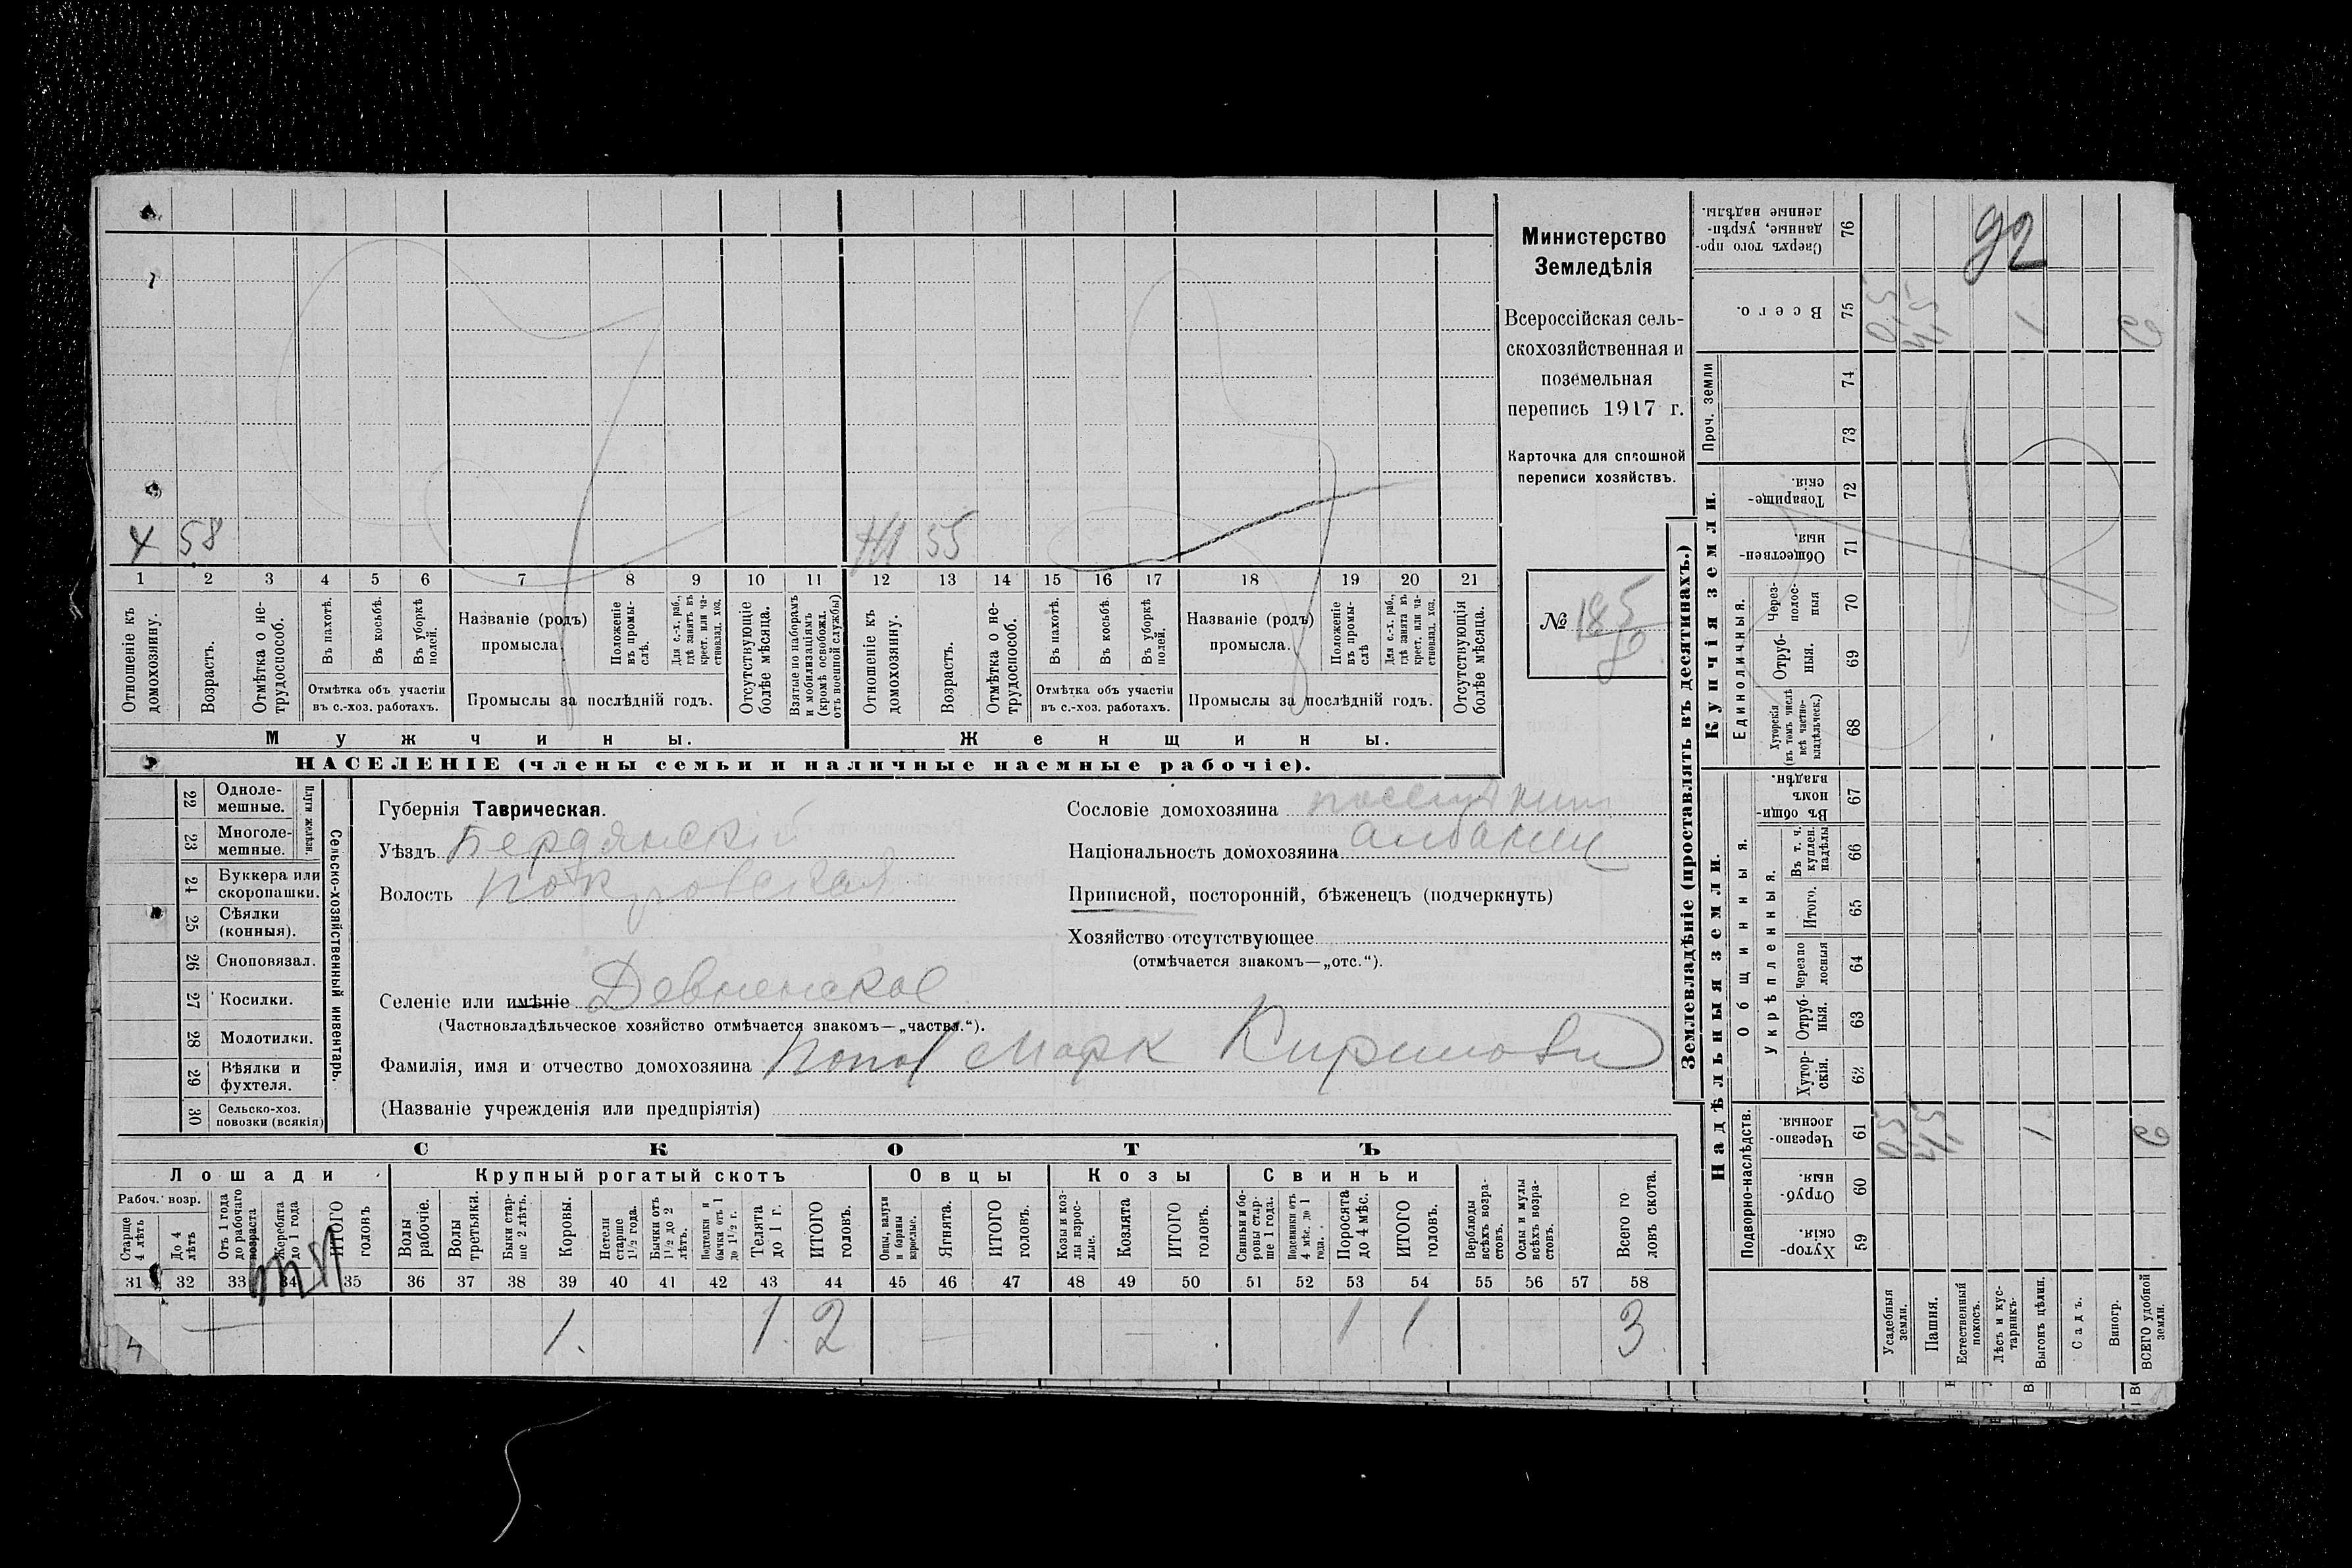 Министерство
Земледѣлія
Всероссійская сель-
скохозяйственная и
поземельная
перепись 1917 г.
Карточка для сплошной
переписи хозяйствъ.
№ 185
92
Х 58
Ж 55
1 2 3 4 5 6 7 8 9 10 11 12 13 14 15 16 17 18 19 20 21
Отношеніе къ домохозяину.
Возрастъ.
Отмѣтка о не-трудоспособ.
Въ пахотѣ.
Въ косьбѣ.
Въ уборкѣ полей.
Отмѣтка объ участіи
въ с.-хоз. работахъ.
Названіе (родъ)
промысла.
Положеніе въ промы-слѣ.
Для с.-х. раб., гдѣ занятъ въ крест. или ча-стновлад. хоз.
Промыслы за послѣдній годъ.
Отсутствующіе болѣе мѣсяца.
Взятые по наборамъ и мобилизаціямъ (кромѣ освобожд. отъ военной службы)
Отношеніе къ домохозяину.
Возрастъ.
Отмѣтка о не-трудоспособ.
Въ пахотѣ.
Въ косьбѣ.
Въ уборкѣ полей.
Отмѣтка объ участіи
въ с.-хоз. работахъ.
Названіе (родъ)
промысла.
Положеніе въ промы-слѣ
Для с.-х. раб., гдѣ занята въ крест. или ча-стновлад. хоз.
Промыслы за послѣдній годъ.
Отсутствующія болѣе мѣсяца.
Мужчины.
Женщины.
НАСЕЛЕНІЕ (члены семьи и наличные наемные рабочіе).
22 Одноле-мешные.
23 Многоле-мешные.
Плуги желѣзн.
24 Буккера или скоропашки.
25 Сѣялки (конныя).
26 Сноповязал.
27 Косилки.
28 Молотилки.
29 Вѣялки и фухтеля.
30 Сельско-хоз. повозки (всякія)
Сельско-хозяйственный инвентарь.
Губернія Таврическая.
Уѣздъ Бердянскій
Волость Покровская
Селеніе или имѣніе Девненское
(Частновладѣльческое хозяйство отмѣчается знакомъ—„частвл.“).
Фамилія, имя и отчество домохозяина Попов Марк
(Названіе учрежденія или предпріятія)
Сословіе домохозяина
Національность домохозяина
Приписной, посторонній, бѣженецъ (подчеркнуть)
Хозяйство отсутствующее
(отмѣчается знакомъ—„отс.“).
СКОТЪ
Лошади
Крупный рогатый скотъ
Овцы
Козы
Свиньи
Рабоч. возр.
Старше 4 лѣтъ
До 4 лѣтъ
Отъ 1 года до рабочаго возраста
Жеребята до 1 года
ИТОГО головъ
Волы рабочіе.
Волы третьяки.
Быки стар-ше 2 лѣтъ.
Коровы.
Нетели старше 1½ года.
Бычки отъ 1½ до 2 лѣтъ.
Подтелки и бычки отъ 1 до 1½ г.
Телята до 1 г.
ИТОГО головъ.
Овцы, валухи и бараны взрослые.
Ягнята.
ИТОГО головъ.
Козы и коз-лы взрос-лые.
Козлята
ИТОГО головъ.
Свиньи и бо-ровы стар-ше 1 года.
Подсвинки отъ 4 мѣс. до 1 года.
Поросята до 4 мѣс.
ИТОГО головъ.
Верблюды всѣхъ возра-стовъ.
Ослы и мулы всѣхъ возра-стовъ.
Всего го ловъ скота.
31 32 33 34 35 36 37 38 39 40 41 42 43 44 45 46 47 48 49 50 51 52 53 54 55 56 57 58
1. 1. 2 1 1 3
4
Землевладѣніе (проставлять въ десятинахъ.)
Купчія земли.
Надѣльныя земли.
Сверхъ того про-данные, укрѣп-ленные надѣлы. 76
Всего. 75
0,5 4,5 1
Проч. земли
74
73
Товарище-скія. 72
Обществен-ныя. 71
Единоличныя.
Через-полос-ныя 70
Отруб-ныя. 69
Хуторскія (въ томъ числѣ всѣ частно-владѣльческ.) 68
Въ общи-номъ владѣн. 67
Общинныя.
Укрѣпленныя.
Въ т. ч. куплен. надѣлы 66
Итого. 65
Черезпо лосныя 64
Отруб-ныя. 63
Хутор-скія. 62
Подворно-наслѣдств.
Черезпо-лосныя. 61
0,5 4,5 1
Отруб-ныя. 60
Хутор-скія. 59
Усадебныя земли.
Пашня.
Естественный покосъ.
Лѣсъ и кус-тарникъ.
Выгонъ цѣлин.
Садъ.
Виногр.
ВСЕГО удобной земли.